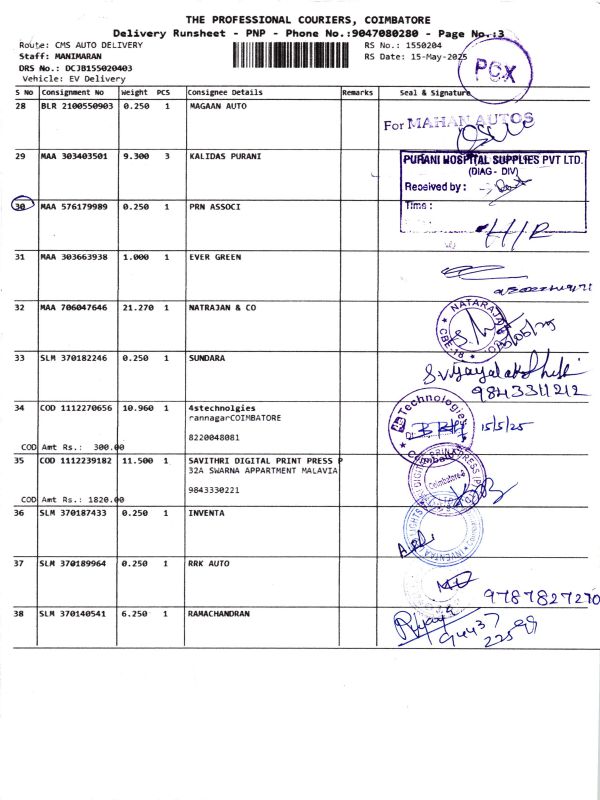 THE PROFESSIONAL COURIERS, COIMBATORE
Delivery Runsheet - PNP - Phone No.:9047080280 - Page No.:3
Route: CMS AUTO DELIVERY
RS No.: 1550204
Staff: MANIMARAN
RS Date: 15-May-2025
DRS No.: DCJB155020403
Vehicle: EV Delivery
PCX
S NO Consignment No Weight PCS Consignee Details Remarks Seal & Signature
28 BLR 2100550903 0.250 1 MAGAAN AUTO
For MAHAN AUTOS
29 MAA 303403501 9.300 3 KALIDAS PURANI
PURANI HOSPITAL SUPPLIES PVT LTD.
(DIAG - DIV)
Received by :
30 MAA 576179989 0.250 1 PRN ASSOCI
Time :
31 MAA 303663938 1.000 1 EVER GREEN
32 MAA 706047646 21.270 1 NATRAJAN & CO
NATARAJAN
CBE-18
33 SLM 370182246 0.250 1 SUNDARA
S.Vijayalakshmi
9843311212
34 COD 1112270656 10.960 1 4stechnolgies
rannagarCOIMBATORE
8220048081
COD Amt Rs.: 300.00
Technologies
15/5/25
35 COD 1112239182 11.500 1 SAVITHRI DIGITAL PRINT PRESS P
32A SWARNA APPARTMENT MALAVIA
9843330221
COD Amt Rs.: 1820.00
Coimbatore-9
36 SLM 370187433 0.250 1 INVENTA
37 SLM 370189964 0.250 1 RRK AUTO
9787827270
38 SLM 370140541 6.250 1 RAMACHANDRAN
94437